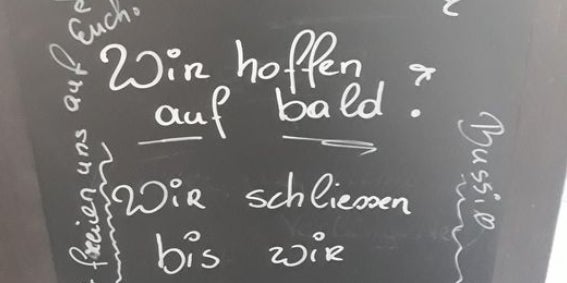 Wir hoffen
auf bald.
Wir schliessen
bis wir
freien uns auf
Euch.
Bussie